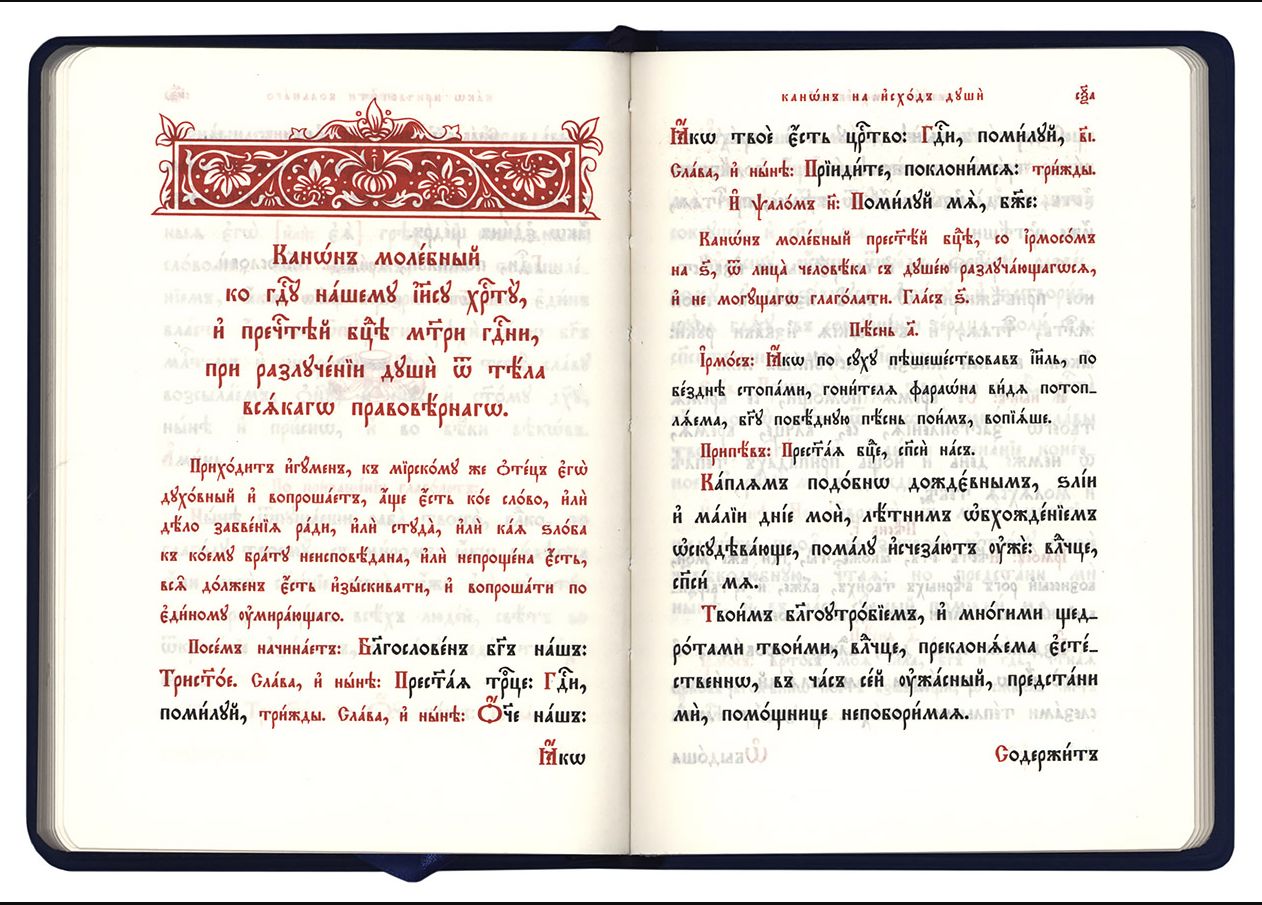 Канѡ́нъ моле́бный
ко гдⷭ҇ꙋ на́шемꙋ і҆и҃сꙋ хрⷭ҇тꙋ̀,
и҆ пречⷭ҇тѣй бц҃ѣ мт҃ри гдⷭ҇ни,
при разлꙋче́нїи дꙋшѝ ѿ тѣ́ла
всѧ́кагѡ правовѣ́рнагѡ.
Прихо́дитъ и҆гꙋ́менъ, къ мїрско́мꙋ же ѻ҆те́цъ є҆гѡ̀
дꙋхо́вный и҆ вопроша́етъ, а҆́ще є҆́сть ко́е сло́во, и҆лѝ
дѣ́ло забве́нїѧ ра́ди, и҆лѝ стꙋда̀, и҆лѝ ка́ѧ ѕло́ба
къ ко́емꙋ бра́тꙋ неисповѣ́дана, и҆лѝ непроще́на є҆́сть,
всѧ̑ до́лженъ є҆́сть и҆зы́скивати, и҆ вопроша́ти по
є҆ди́номꙋ ᲂу҆мира́ющаго.
Посе́мъ начина́етъ: Бл҃гослове́нъ бг҃ъ на́шъ:
Трист҃о́е. Сла́ва, и҆ ны́нѣ: Прест҃а́ѧ трⷪ҇це: Гдⷭ҇и,
поми́лꙋй, три́жды. Сла́ва, и҆ ны́нѣ: Ѻ҆́ч҃е на́шъ:
Ꙗ҆́кѡ
канѡ́нъ на и҆схо́дъ дꙋшѝ
Ꙗ҆́кѡ твоѐ є҆́сть црⷭ҇тво: Гдⷭ҇и, поми́лꙋй, в҃і.
Сла́ва, и҆ ны́нѣ: Прїиди́те, поклони́мсѧ: три́жды.
И҆ ѱало́мъ н҃: Поми́лꙋй мѧ̀, бж҃е:
Канѡ́нъ моле́бный прест҃ѣ́й бц҃ѣ, со і҆рмосо́мъ
на ѕ҃, ѿ лица̀ человѣ́ка съ дꙋше́ю разлꙋча́ющагѡсѧ,
и҆ не могꙋ́щагѡ глаго́лати. Гла́съ ѕ҃.
Пѣ́снь а҃.
І҆рмо́съ: Ꙗ҆́кѡ по сꙋ́хꙋ пѣшеше́ствовавъ і҆и҃ль, по
бе́зднѣ стопа́ми, гони́телѧ фараѡ́на ви́дѧ потоп-
лѧ́ема, бг҃ꙋ побѣ́днꙋю пѣ́снь пои́мъ, вопїѧ́ше.
Припѣ́въ: Прест҃а́ѧ бц҃е, сп҃сѝ на́съ.
Ка́плѧмъ подо́бнѡ дожде̑внымъ, ѕлі́и
и҆ ма́лїи дні́е моѝ, лѣ́тнимъ ѡ҆бхожде́нїемъ
ѡ҆скꙋдѣва́юще, пома́лꙋ и҆счеза́ютъ ᲂу҆жѐ: влⷣчце,
сп҃сѝ мѧ̀.
Твои́мъ бл҃гоꙋтро́бїемъ, и҆ мно́гими щед-
ро́тами твои́ми, влⷣчце, преклонѧ́ема є҆сте́-
ственнѡ, въ ча́съ се́й ᲂу҆жа́сный, предста́ни
мѝ, помо́щнице непобори́маѧ.
Содержи́тъ